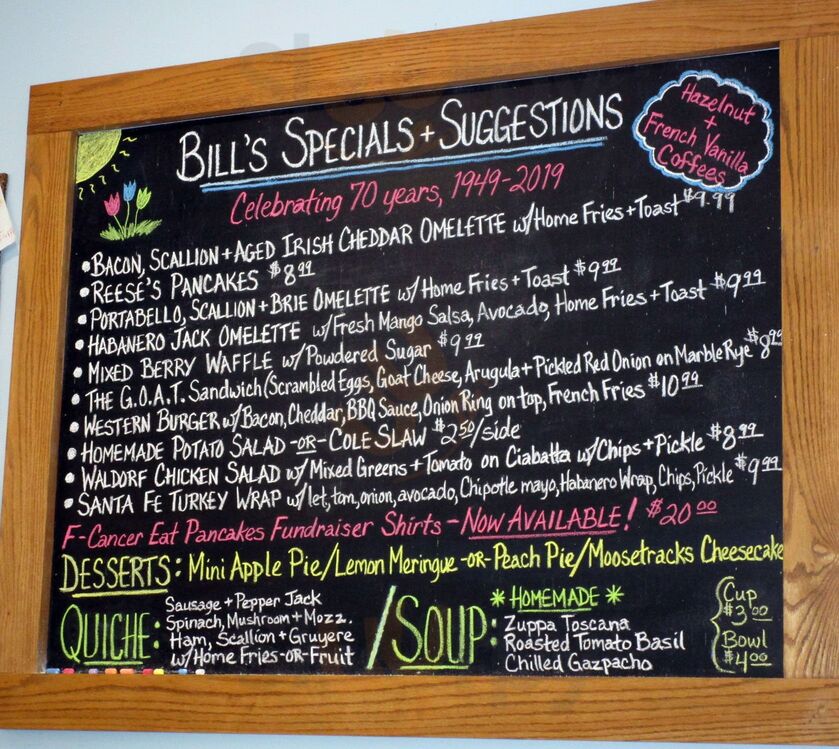 BILL'S SPECIALS + SUGGESTIONS
Hazelnut
+
French Vanilla
Coffees
Celebrating 70 years, 1949-2019
• BACON, SCALLION + AGED IRISH CHEDDAR OMELETTE w/Home Fries + Toast $9.99
• REESE'S PANCAKES $8.99
• PORTABELLO, SCALLION + BRIE OMELETTE w/ Home Fries + Toast $9.99
• HABANERO JACK OMELETTE w/Fresh Mango Salsa, Avocado, Home Fries + Toast $9.99
• MIXED BERRY WAFFLE w/Powdered Sugar $9.99
• THE G.O.A.T. Sandwich (Scrambled Eggs, Goat Cheese, Arugula + Pickled Red Onion on Marble Rye $8.99
• WESTERN BURGER w/ Bacon, Cheddar, BBQ Sauce, Onion Ring on top, French Fries $10.99
• HOMEMADE POTATO SALAD -OR- COLE SLAW $2.50/side
• WALDORF CHICKEN SALAD w/ Mixed Greens + Tomato on Ciabatta w/Chips + Pickle $8.99
• SANTA FE TURKEY WRAP w/let, tom, onion, avocado, Chipotle mayo, Habanero Wrap, Chips, Pickle $9.99
F-Cancer Eat Pancakes Fundraiser Shirts - NOW AVAILABLE! $20.00
DESSERTS: Mini Apple Pie/Lemon Meringue -OR- Peach Pie/Moosetracks Cheesecake
QUICHE:
Sausage + Pepper Jack
Spinach, Mushroom + Mozz.
Ham, Scallion + Gruyere
w/Home Fries -OR- Fruit
/SOUP:
* HOMEMADE *
Zuppa Toscana
Roasted Tomato Basil
Chilled Gazpacho
Cup
$3.00
Bowl
$4.00